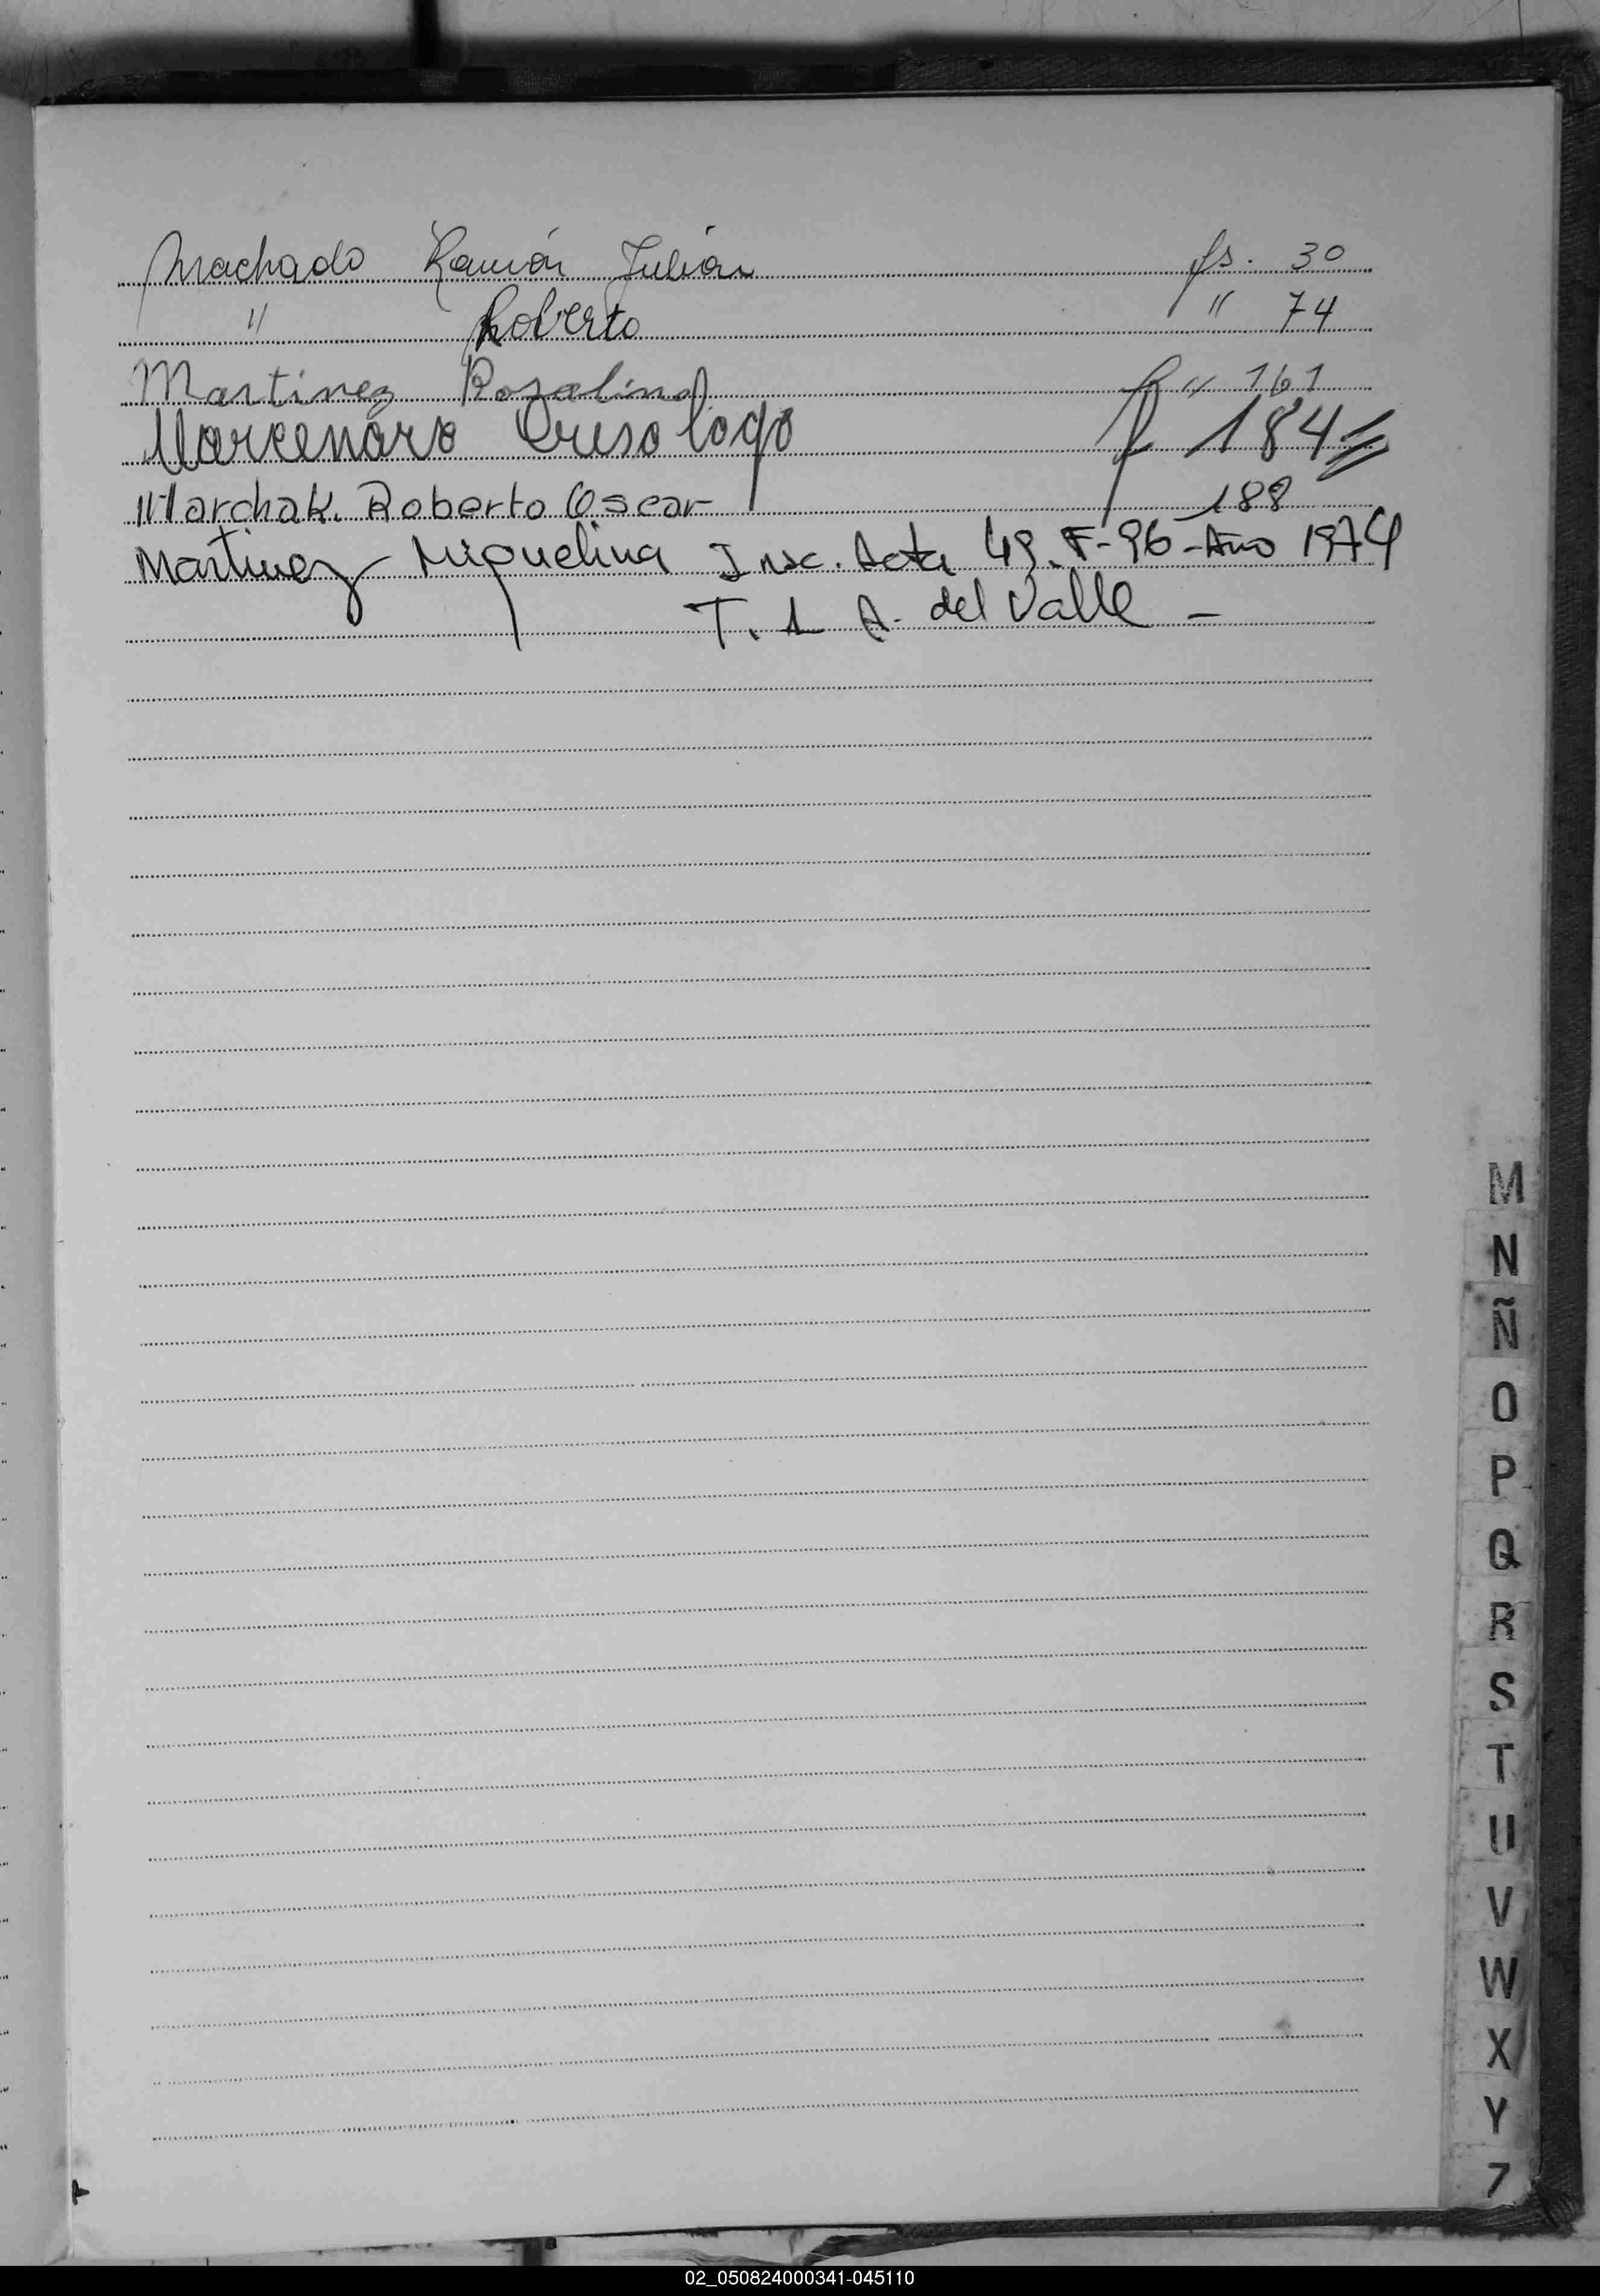 Machado Ramón Julián fs. 30
" Roberto " 74
Martinez Rosalino f " 161
Marcenaro Crisologo f 184
Marchak. Roberto Oscar 188
Martinez Miquelina Insc. Acta 49. F-96-Año 1974
T. 1 A. del Valle -
M
N
Ñ
O
P
Q
R
S
T
U
V
W
X
Y
Z
02_050824000341-045110